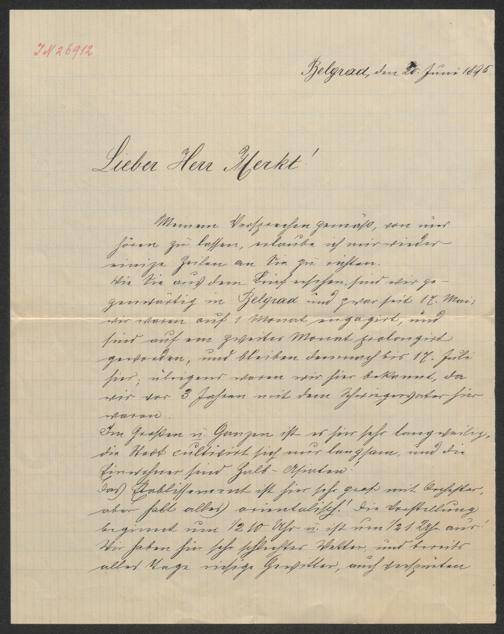 IN 26912
Belgrad, den 20. Juni 1895
Lieber Herr Merkt!
Meinem Versprechen gemäß, von uns
hören zu lassen, erlaube ich mir wieder
einige Zeilen an Sie zu richten.
Wie Sie aus dem Brief ersehen, sind wir ge-
genwärtig in Belgrad und zwar seit 17. Mai;
wir waren auf 1 Monat engagirt, und
sind auf ein zweites Monat prolongirt
geworden, und bleiben demnach bis 17. Juli
hier; übrigens waren wir hier bekannt, da
wir vor 3 Jahren mit dem Schwiegervater hier
waren.
Im Großen u. Ganzen ist es hier sehr langweilig,
die Stadt cultivirt sich nur langsam, und die
Einwohner sind Halb-Asiaten!
Das Etablissement ist hier sehr groß mit Orchester,
aber halt alles orientalisch! Die Vorstellung
beginnt um 1/2 10 Uhr u. ist um 1/2 1 Uhr aus!
Wir haben hier sehr schlechtes Wetter, und bereits
alle Tage riesige Gewitter, auch verspürten